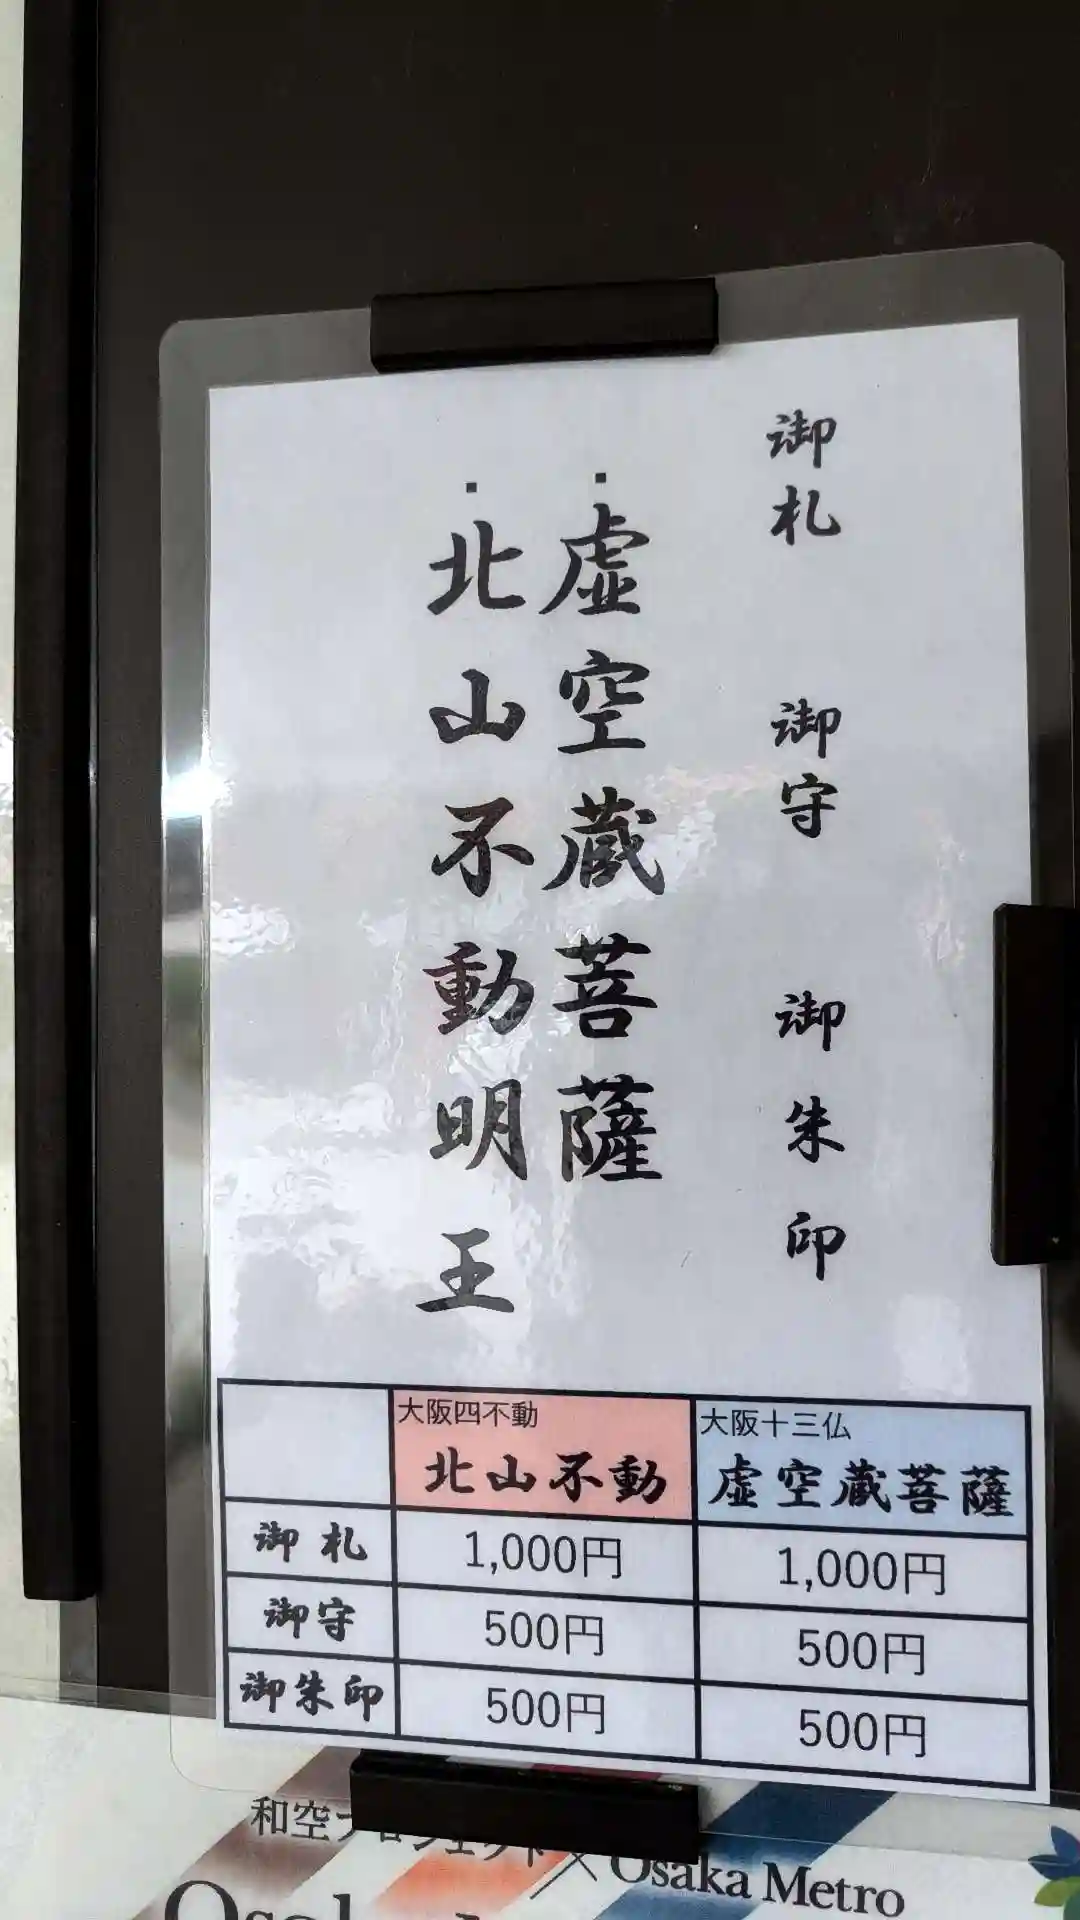 御札 御守 御朱印
・虚空蔵菩薩
・北山不動明王
大阪四不動 大阪十三仏
北山不動 虚空蔵菩薩
御札 1,000円 1,000円
御守 500円 500円
御朱印 500円 500円
和空プロジェクト × Osaka Metro